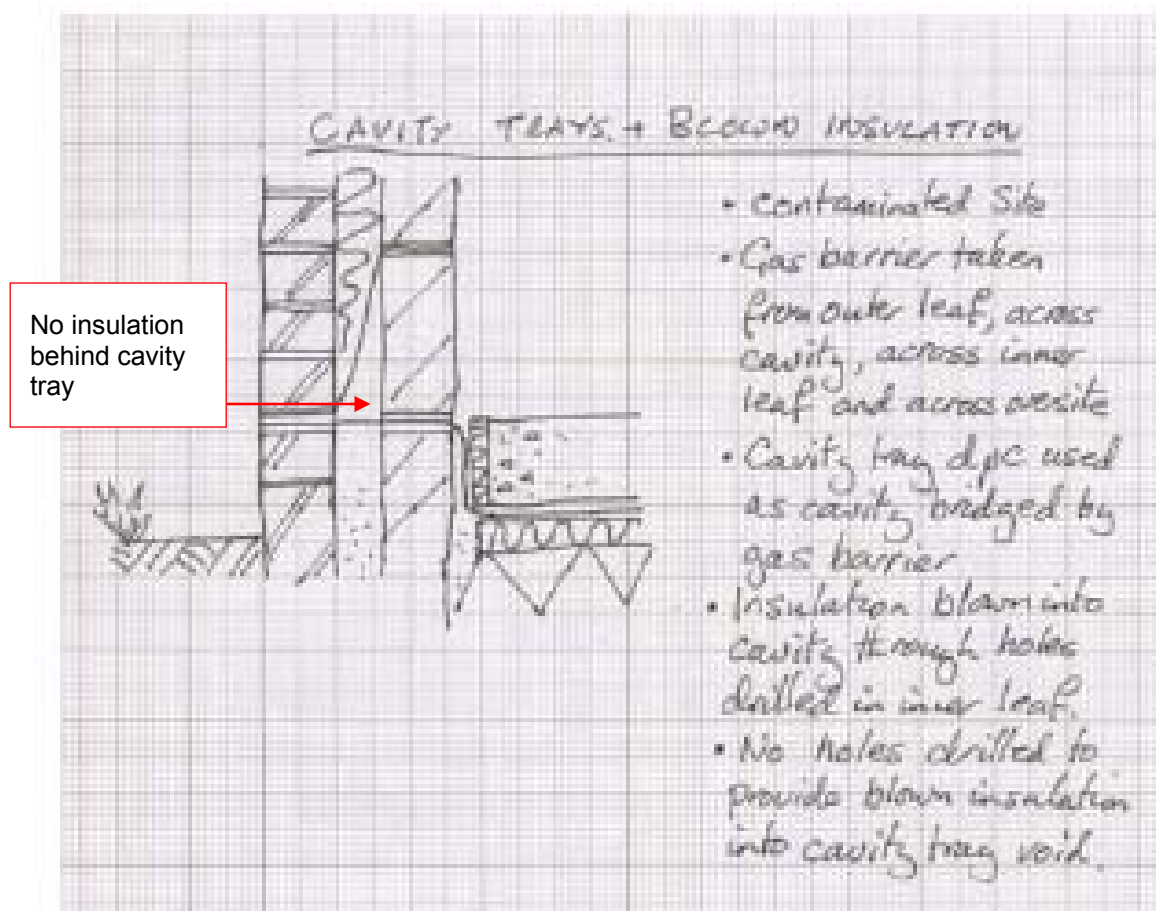 CAVITY TRAYS + BLOWN INSULATION
No insulation
behind cavity
tray
• Contaminated Site
• Gas barrier taken
from outer leaf, across
cavity, across inner
leaf and across oversite
• Cavity tray dpc used
as cavity bridged by
gas barrier
• Insulation blown into
cavity through holes
drilled in inner leaf.
• No holes drilled to
provide blown insulation
into cavity tray void.